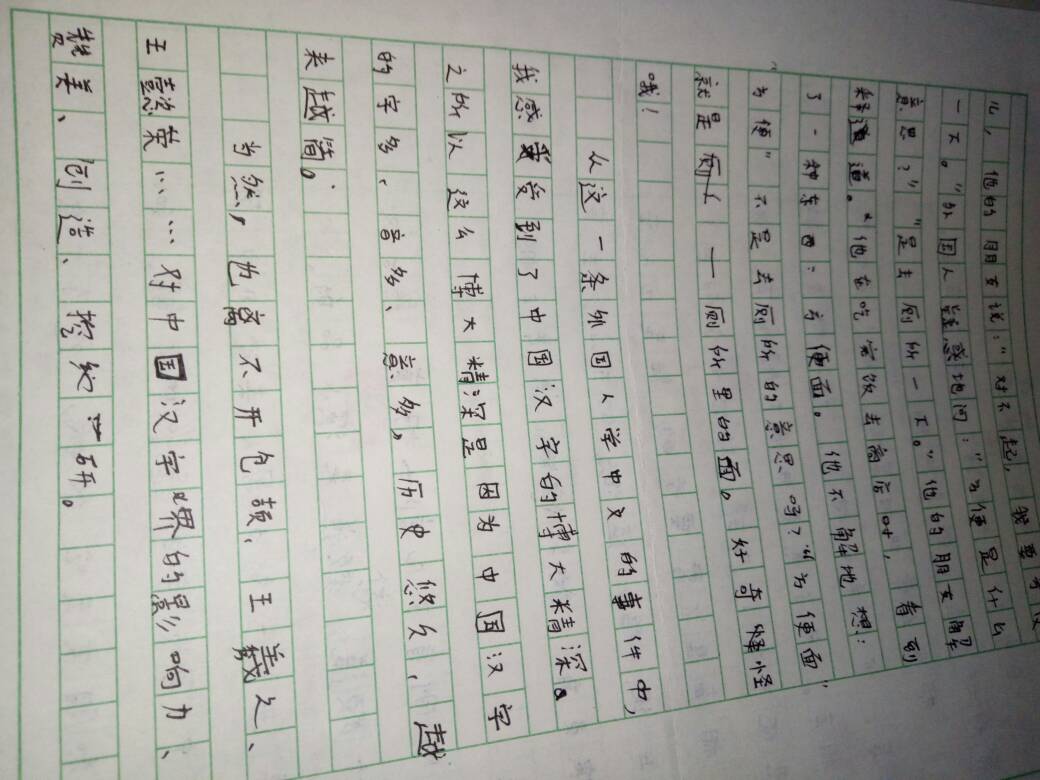 儿，他的朋友说：“对不起，我要方便
一下。”外国人疑惑地问：“方便是什么
意思？”“是去厕所一下。”他的朋友解
释道。他在吃完饭去商店时，看到
了一种东西：方便面。他不解地想：
“方便”不是去厕所的意思吗？“方便面”
就是厕——厕所里的面。好奇怪
哦！
从这一条外国人学中文的事件中，
我感受到了中国汉字的博大精深。
之所以这么博大精深是因为中国汉字
的字多、音多、意多，历史悠久，越
来越简。
当然，也离不开仓颉、王羲之、
王懿荣……对中国汉字界的影响力、
赞美、创造、